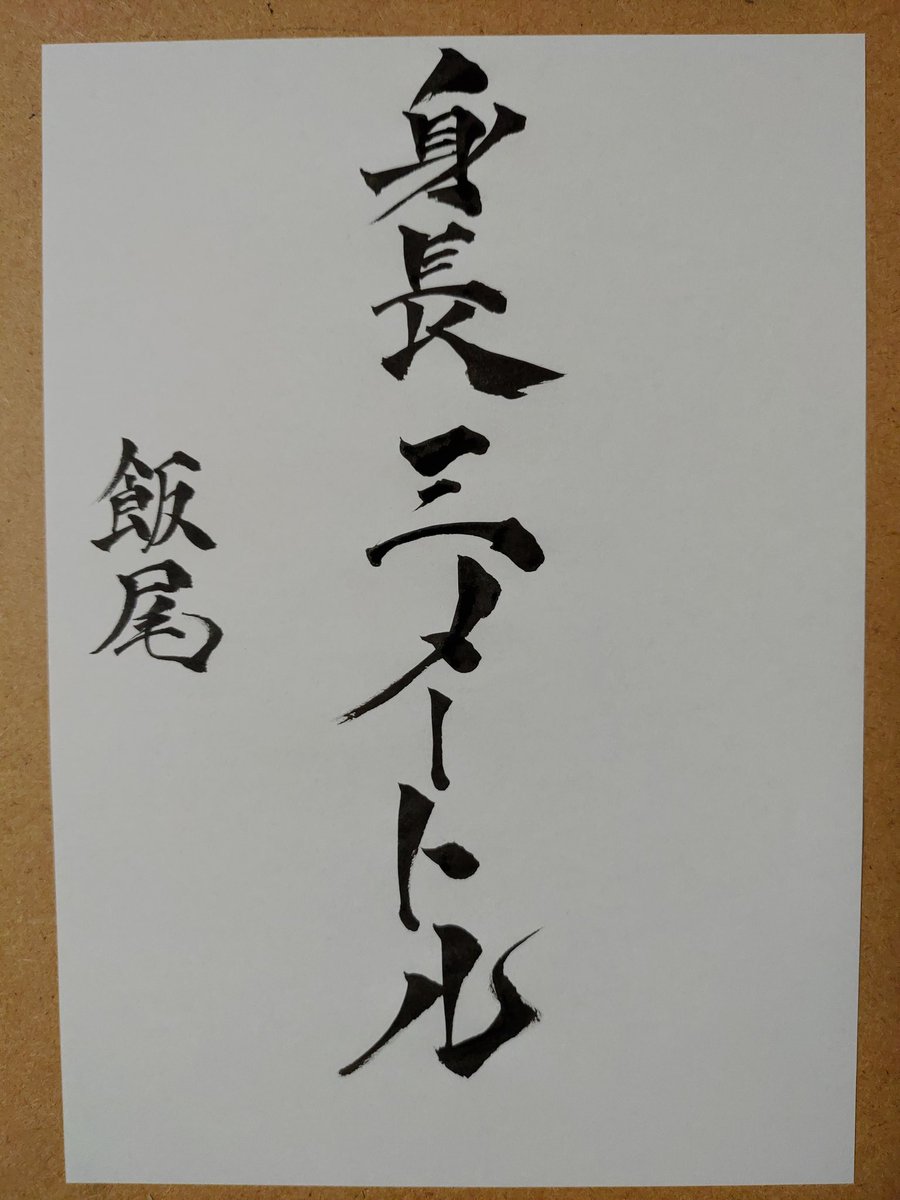 身長三メートル
飯尾